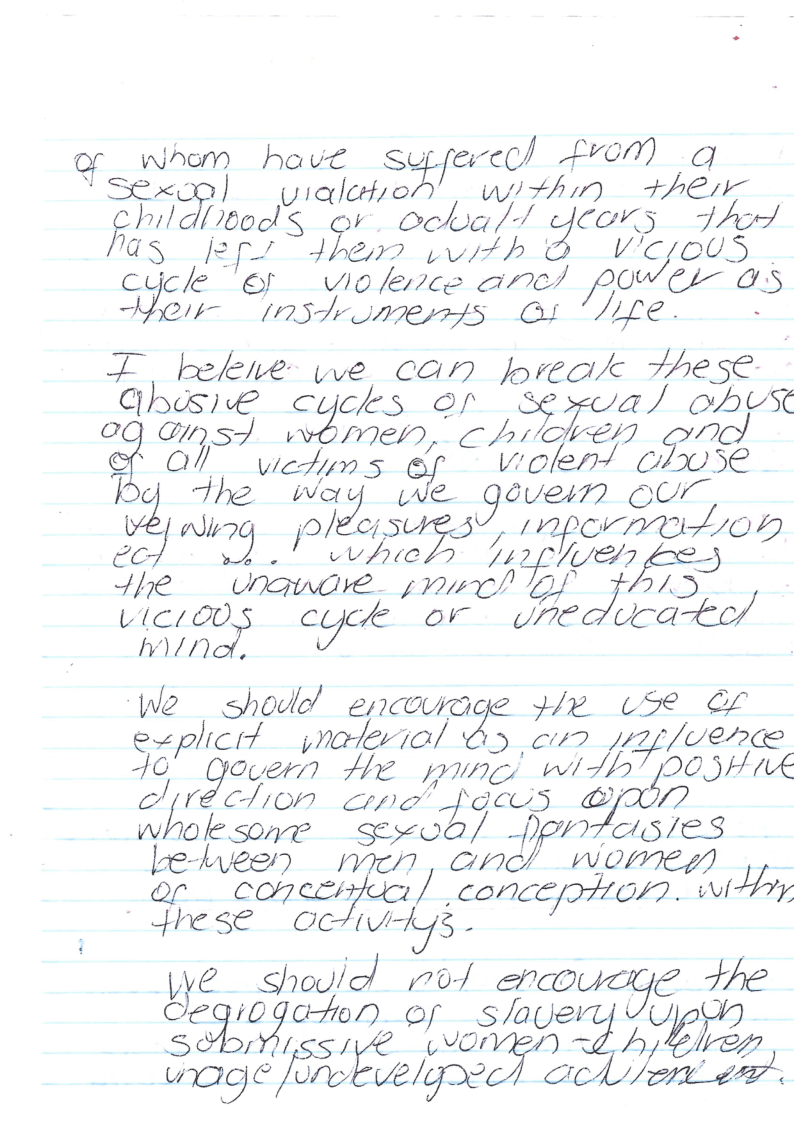 of whom have suffered from a
sexual vialation within their
childhoods or adualt years that
has left them with a vicious
cycle of violence and power as
their instruments of life.
I beleive we can break these
abusive cycles of sexual abuse
against women, children and
of all victims of violent abuse
by the way we govern our
veiwing pleasures, information
ect ... which influences
the unaware mind of this
vicious cycle or uneducated
mind.
We should encourage the use of
explicit material as an influence
to govern the mind with positive
direction and focus upon
wholesome sexual fantasies
between men and women
of concentual conception. within
these activitys.
We should not encourage the
degrogation of slavery upon
submissive women children
unage/undevelyped